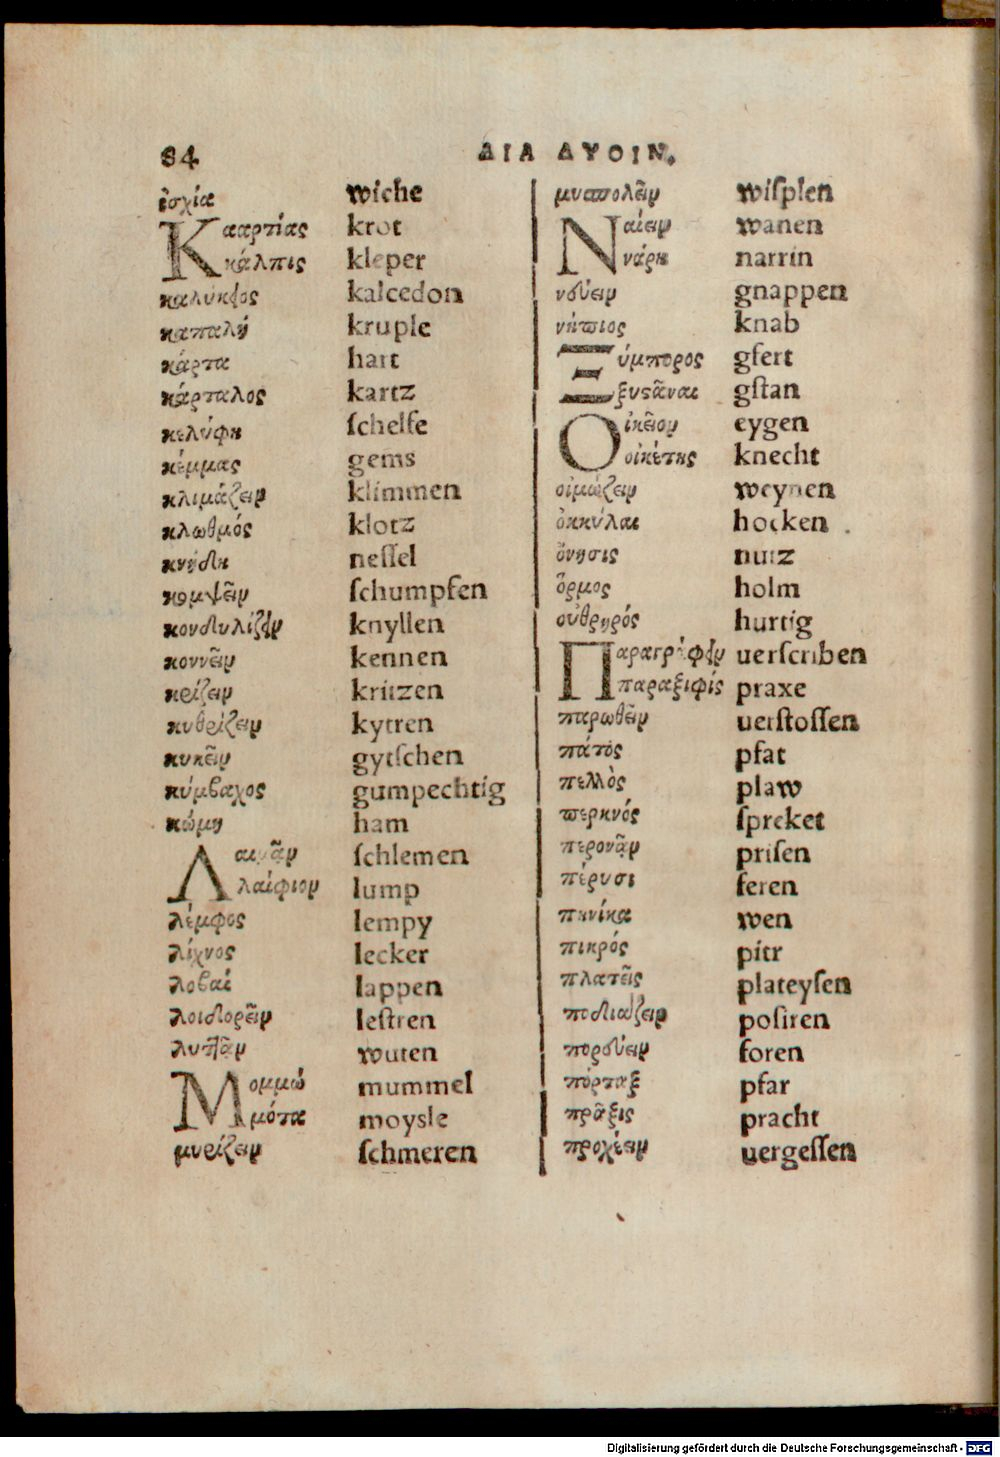 84 ΔΙΑ ΔΥΟΙΝ.
ἰσχία wiche
Κααρτίας krot
κάλπις kleper
καλυκφος kalcedon
καπαλή kruple
κάρτα hart
κάρταλος kartz
κελύφη ſchelfe
κέμμας gems
κλιμάζειν klimmen
κλωθμός klotz
κνήδη neſſel
κομψεῖν ſchumpfen
κονδυλίζειν knyllen
κοννεῖν kennen
κρίζειν kritzen
κυθρίζειν kytren
κυκεῖν gytſchen
κύμβαχος gumpechtig
κώμη ham
Λαιμᾶν ſchlemen
λαίφιον lump
λέμφος lempy
λίχνος lecker
λοβαί lappen
λοιδορεῖν leſtren
λυττᾶν wuten
Μομμώ mummel
μότα moysle
μυρίζειν ſchmeren
μυαπολεῖν wiſplen
Ναίειν wanen
νάρη narrin
νεύειν gnappen
νήπιος knab
Ξύμπορος gfert
ξυστᾶναι gſtan
Οἰκεῖον eygen
οἰκέτης knecht
οἰμώζειν weynen
ὀκκύλαι hocken
ὄνησις nutz
ὅρμος holm
οὐθρηρός hurtig
Παραγράφειν uerſcriben
παραξιφίς praxe
παρωθεῖν uerſtoſſen
πάτος pfat
πελλὸς plaw
περκνός ſpreket
περονᾶν priſen
πέρυσι feren
πηνίκα wen
πικρός pitr
πλατεῖς plateyſen
ποδιάζειν poſiren
πορεύειν foren
πόρταξ pfar
πρᾶξις pracht
προχέειν uergeſſen
Digitalisierung gefördert durch die Deutsche Forschungsgemeinschaft - DFG